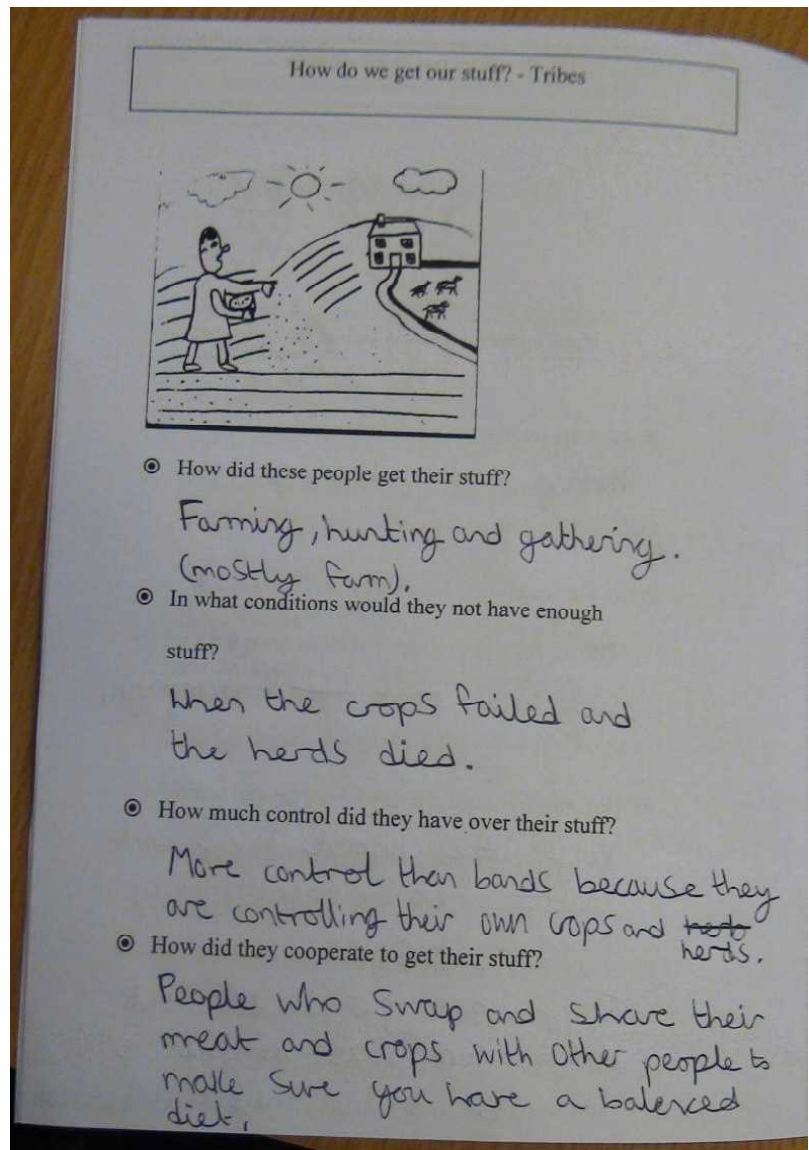 How do we get our stuff? - Tribes
How did these people get their stuff?
Farming, hunting and gathering.
(mostly farm).
In what conditions would they not have enough
stuff?
When the crops failed and
the herds died.
How much control did they have over their stuff?
More control than bands because they
are controlling their own crops and
herds.
How did they cooperate to get their stuff?
People who swap and share their
meat and crops with other people to
make sure you have a balenced
diet.